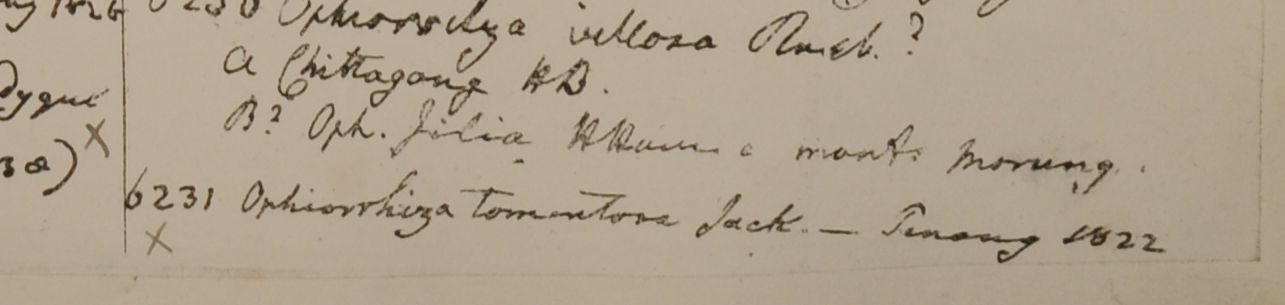 1826
6230 Ophiorrhiza villosa Roxb.?
a Chittagong HB.
dygul
B? Oph. filia HHam. e mont. Morung.
32)
6231 Ophiorrhiza tomentosa Jack. — Penang 1822